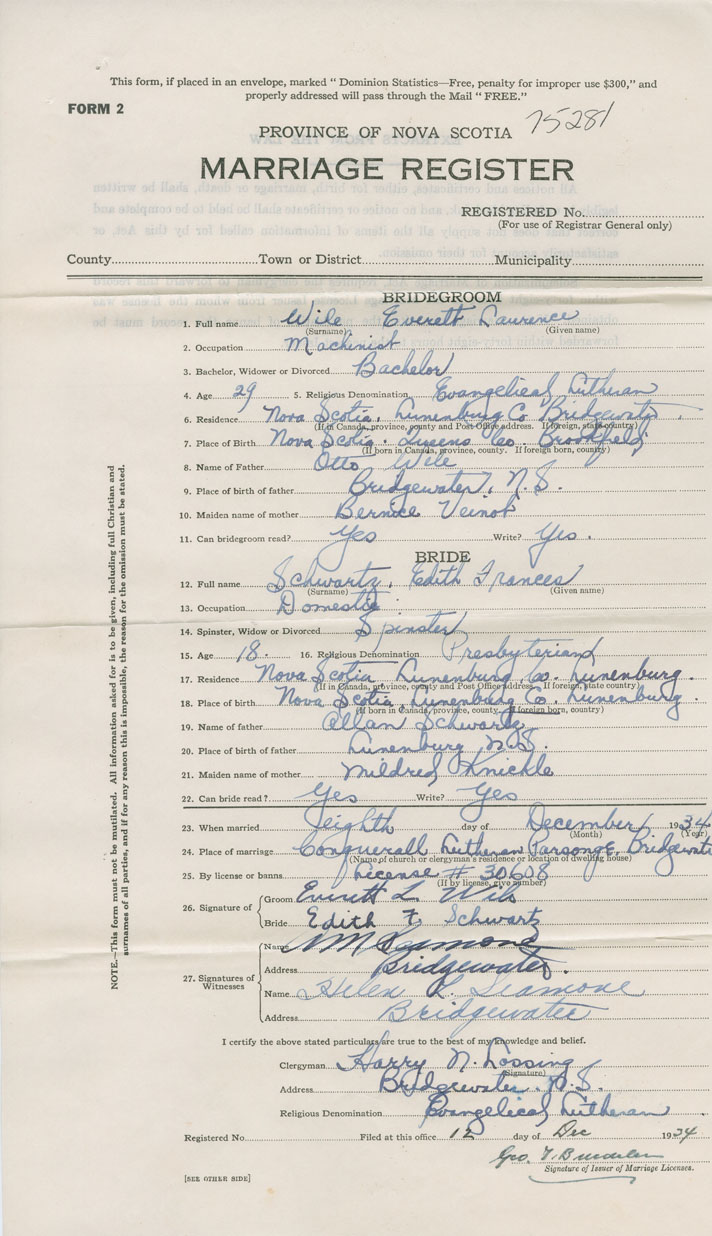 This form, if placed in an envelope, marked “ Dominion Statistics—Free, penalty for improper use $300,” and
properly addressed will pass through the Mail “ FREE.”
FORM 2
75281
PROVINCE OF NOVA SCOTIA
MARRIAGE REGISTER
REGISTERED No.
(For use of Registrar General only)
County Town or District Municipality
BRIDEGROOM
1. Full name Wile Everett Laurence
(Surname) (Given name)
2. Occupation Machinist
3. Bachelor, Widower or Divorced Bachelor
4. Age 29 5. Religious Denomination Evangelical Lutheran
6. Residence Nova Scotia, Lunenburg Co. Bridgewater.
(If in Canada, province, county and Post Office address. If foreign, state country)
7. Place of Birth Nova Scotia. Queens Co. Brookfield
(If born in Canada, province, county. If foreign born, country)
8. Name of Father Otto Wile
9. Place of birth of father Bridgewater, N.S.
10. Maiden name of mother Bernice Veinot
11. Can bridegroom read? Yes Write? Yes.
BRIDE
12. Full name Schwartz, Edith Frances
(Surname) (Given name)
13. Occupation Domestic
14. Spinster, Widow or Divorced Spinster
15. Age 18. 16. Religious Denomination Presbyterian
17. Residence Nova Scotia Lunenburg Co. Lunenburg.
(If in Canada, province, county and Post Office address. If foreign, state country)
18. Place of birth Nova Scotia Lunenburg Co. Lunenburg.
(If born in Canada, province, county. If foreign born, country)
19. Name of father Allan Schwartz
20. Place of birth of father Lunenburg N.S.
21. Maiden name of mother Mildred Knickle
22. Can bride read? Yes Write? Yes
23. When married eighth day of December 1934
(Month) (Year)
24. Place of marriage Conquerall Lutheran Parsonge, Bridgewate
(Name of church or clergyman's residence or location of dwelling house)
25. By license or banns License # 30608
(If by license, give number)
26. Signature of Groom Everett L. Wile
Bride Edith F. Schwartz
27. Signatures of Witnesses
Name Seamone
Address Bridgewater.
Name Helen L. Seamone
Address Bridgewater
I certify the above stated particulars are true to the best of my knowledge and belief.
Clergyman Harry N. Lossing
(Signature)
Address Bridgewater. N.S.
Religious Denomination Evangelical Lutheran
Registered No. Filed at this office 12 day of Dec 1934
Geo.
Signature of Issuer of Marriage Licenses.
[SEE OTHER SIDE]
NOTE.—This form must not be mutilated. All information asked for is to be given, including full Christian and
surnames of all parties, and if for any reason this is impossible, the reason for the omission must be stated.